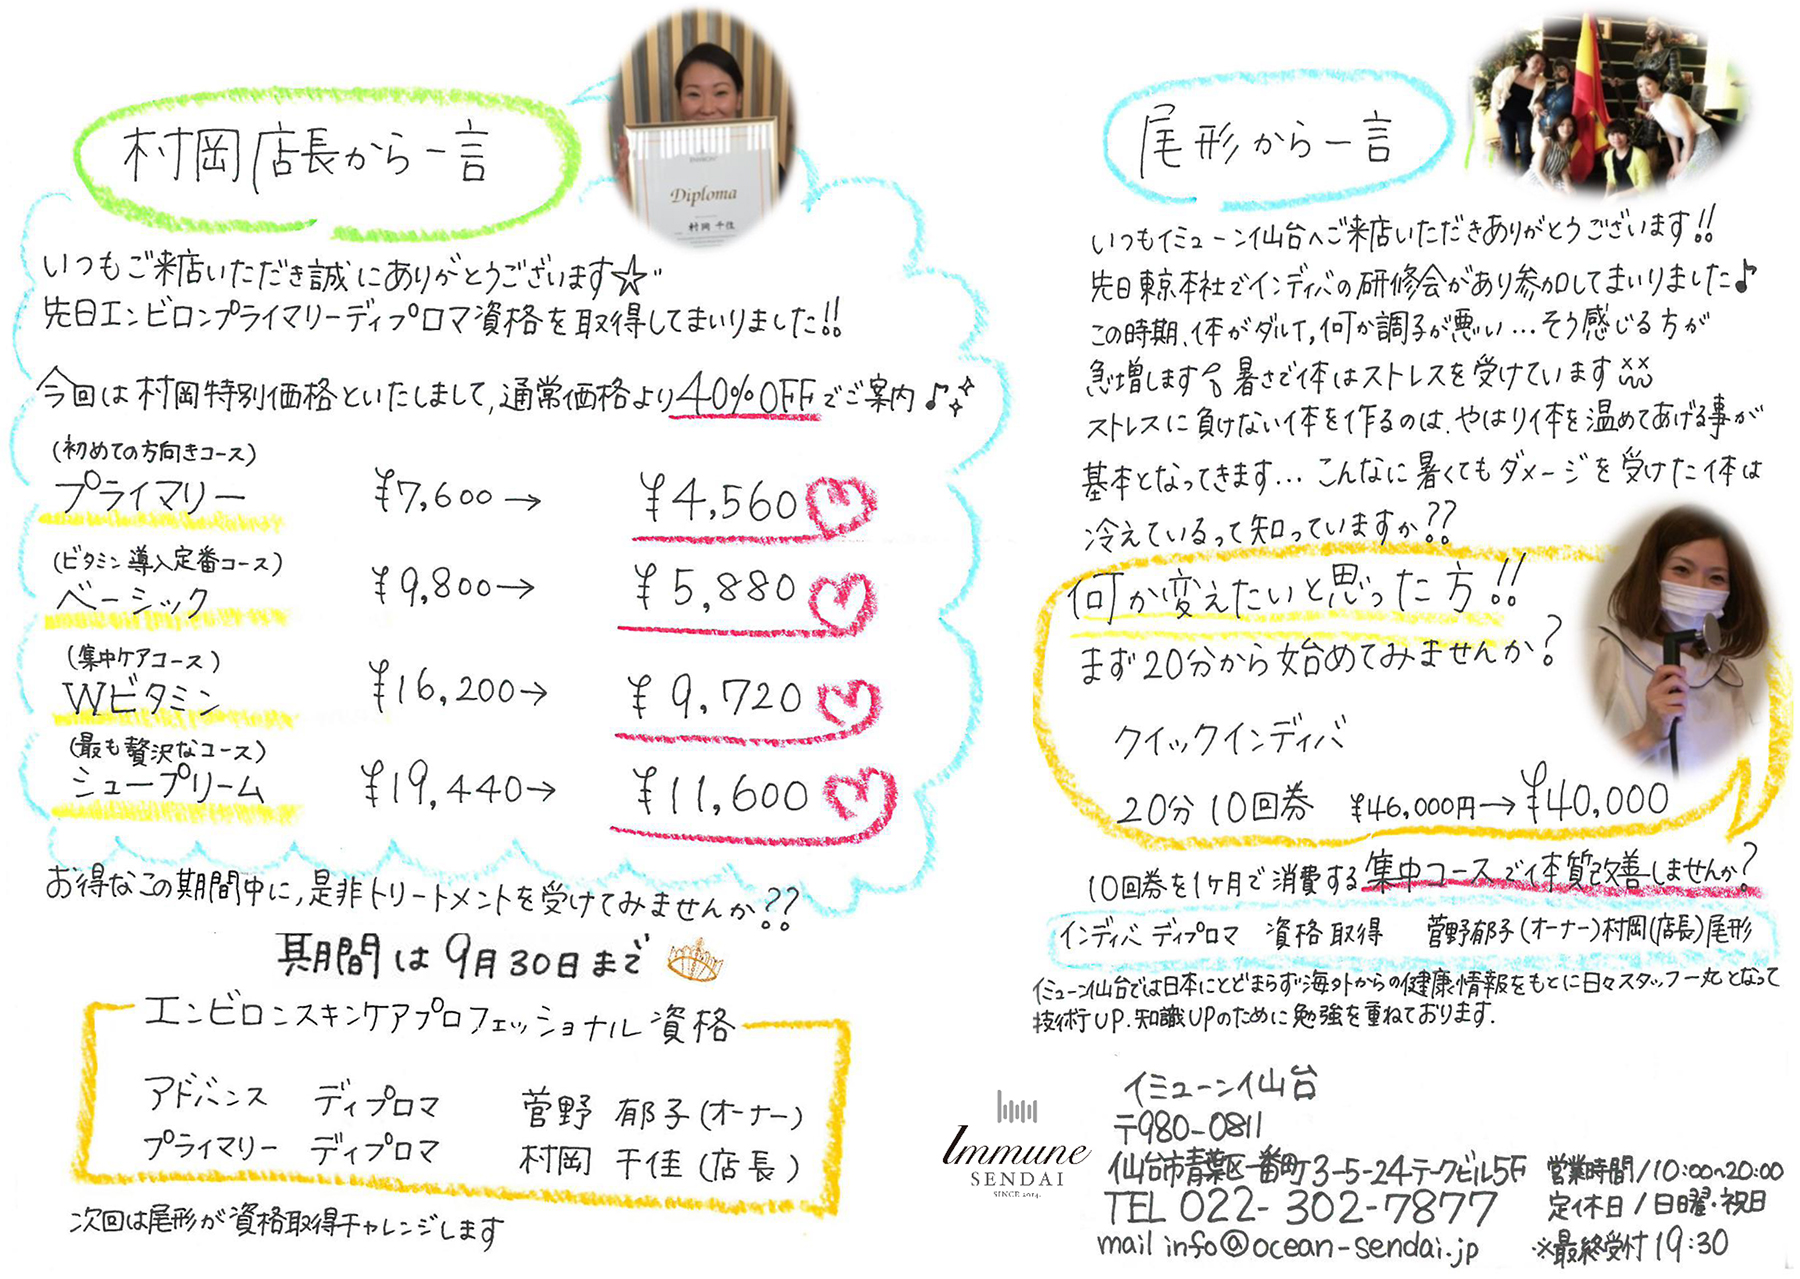 村岡店長から一言
Diploma
村岡 千佳
いつもご来店いただき誠にありがとうございます☆
先日エンビロンプライマリーディプロマ資格を取得してまいりました!!
今回は村岡特別価格といたしまして、通常価格より40%OFFでご案内♪
(初めての方向きコース)
プライマリー ¥7,600→ ¥4,560
(ビタミン導入定番コース)
ベーシック ¥9,800→ ¥5,880
(集中ケアコース)
Wビタミン ¥16,200→ ¥9,720
(最も贅沢なコース)
シュープリーム ¥19,440→ ¥11,600
お得なこの期間中に、是非トリートメントを受けてみませんか??
期間は9月30日まで
エンビロンスキンケアプロフェッショナル資格
アドバンス ディプロマ 菅野 郁子(オーナー)
プライマリー ディプロマ 村岡 千佳(店長)
次回は尾形が資格取得チャレンジします
尾形から一言
いつもイミューン仙台へご来店いただきありがとうございます!!
先日東京本社でインディバの研修会があり参加してまいりました♪
この時期、体がダルイ,何か調子が悪い…そう感じる方が
急増します 暑さで体はストレスを受けています
ストレスに負けない体を作るのは、やはり体を温めてあげる事が
基本となってきます…こんなに暑くてもダメージを受けた体は
冷えているって知っていますか??
何か変えたいと思った方!!
まず20分から始めてみませんか?
クイックインディバ
20分10回券 ¥46,000円→¥40,000
10回券を1ケ月で消費する集中コースで体質改善しませんか?
インディバ ディプロマ 資格取得 菅野郁子(オーナー)村岡(店長)尾形
イミューン仙台では日本にとどまらず海外からの健康情報をもとに日々スタッフ一丸となって
技術UP.知識UPのために勉強を重ねております.
Immune
SENDAI
SINCE 2014.
イミューン仙台
〒980-0811
仙台市青葉区一番町3-5-24テークビル5F
TEL 022-302-7877
mail info@ocean-sendai.jp
営業時間/10:00~20:00
定休日/日曜・祝日
※最終受付19:30